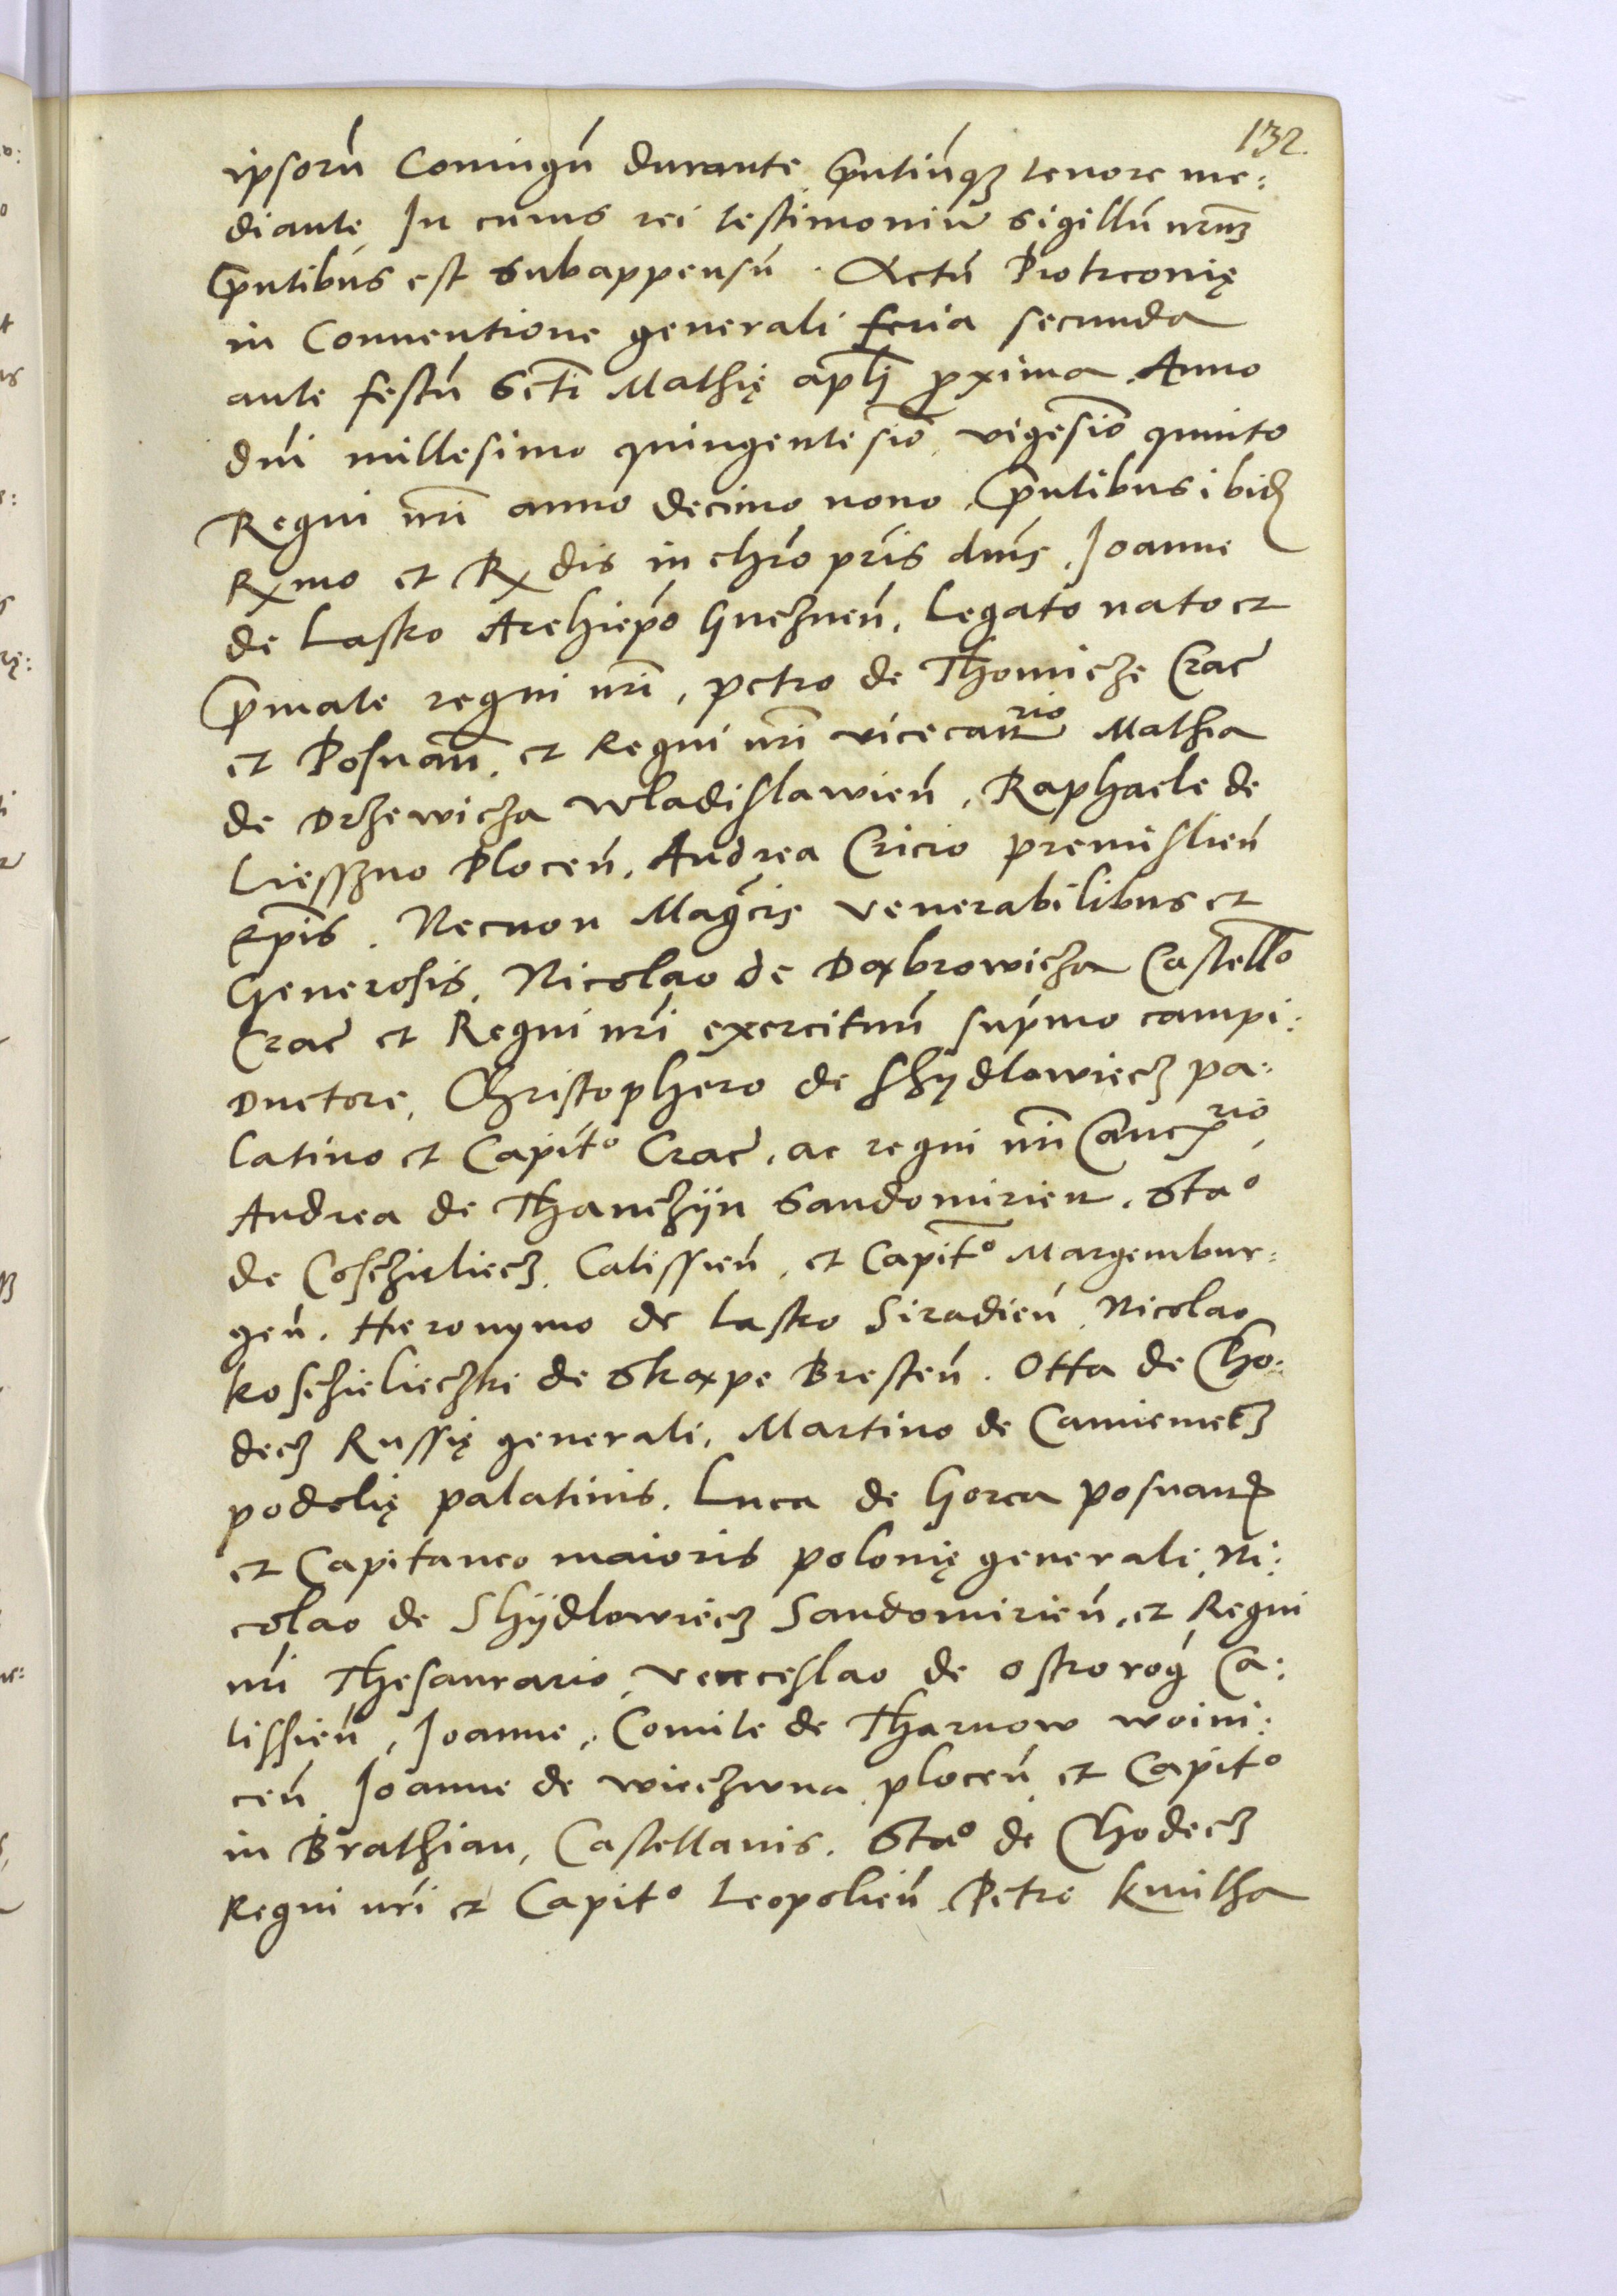 132.
ipsorū Coniugū durante, p̄ntiūqʒ tenore me:
diante, In cuius rei testimoniū sigillū nr̄mʒ
p̄ntibus est subappensū. Actū Piotrconię
in Conuentione generali feria secunda
ante festū Scti Mathię apli ꝓxima. Anno
dn̄i millesimo quingentesiō vigesiō quinto
Regni nr̄i anno decimo nono, p̄ntibus ibid
Rxmo et Rx dis in chr̄o pr̄is dn̄is, Joanne
de Lasko Archiep̄o Gneznen̄, Legato nato et
p̄mate regni nr̄i, petro de Thomicze Crac̄
et Posnan̄, et Regni nr̄i vicecanrio Mathia
de Drzewicza Wladislawien̄, Raphaele de
Liesszno Plocen̄, Andrea Cricio premislien̄
Ep̄is. Necnon Magcis venerabilibus et
Generosis, Nicolao de Dąbrowicza Castello
Crac̄ et Regni nr̄i exercituū sup̄mo campi:
ductore, Christophero de Schydlowiecz pa:
latino et Capit° Crac̄, ac regni nr̄i Cancrio,
Andrea de Thanczijn Sandomirien. Sta°
de Cosczieliecz, Calissien̄, et Capit° Margembur:
gen̄. Hieronymo de Lasko Siradien̄, Nicolao
Kosczieliezki de Skąpe Bresten̄. Otta de Cho:
decz Russię generali, Martino de Camieniecz
podolię palatinis. Luca de Gorca posnan
et Capitaneo maioris polonię generali, Ni:
colao de Shijdlowiecz Sandomirien̄, et Regni
nr̄i Thesaurario, Venceslao de Ostrorog Ca:
lissien̄, Joanne, Comite de Tharnow woini:
cen̄, Joanne de wieczwna, plocen̄ et Capit°
in Brathian, Castellanis. Sta° de Chodecz
Regni nr̄i et Capit° Leopolien̄, Petro Kmitha